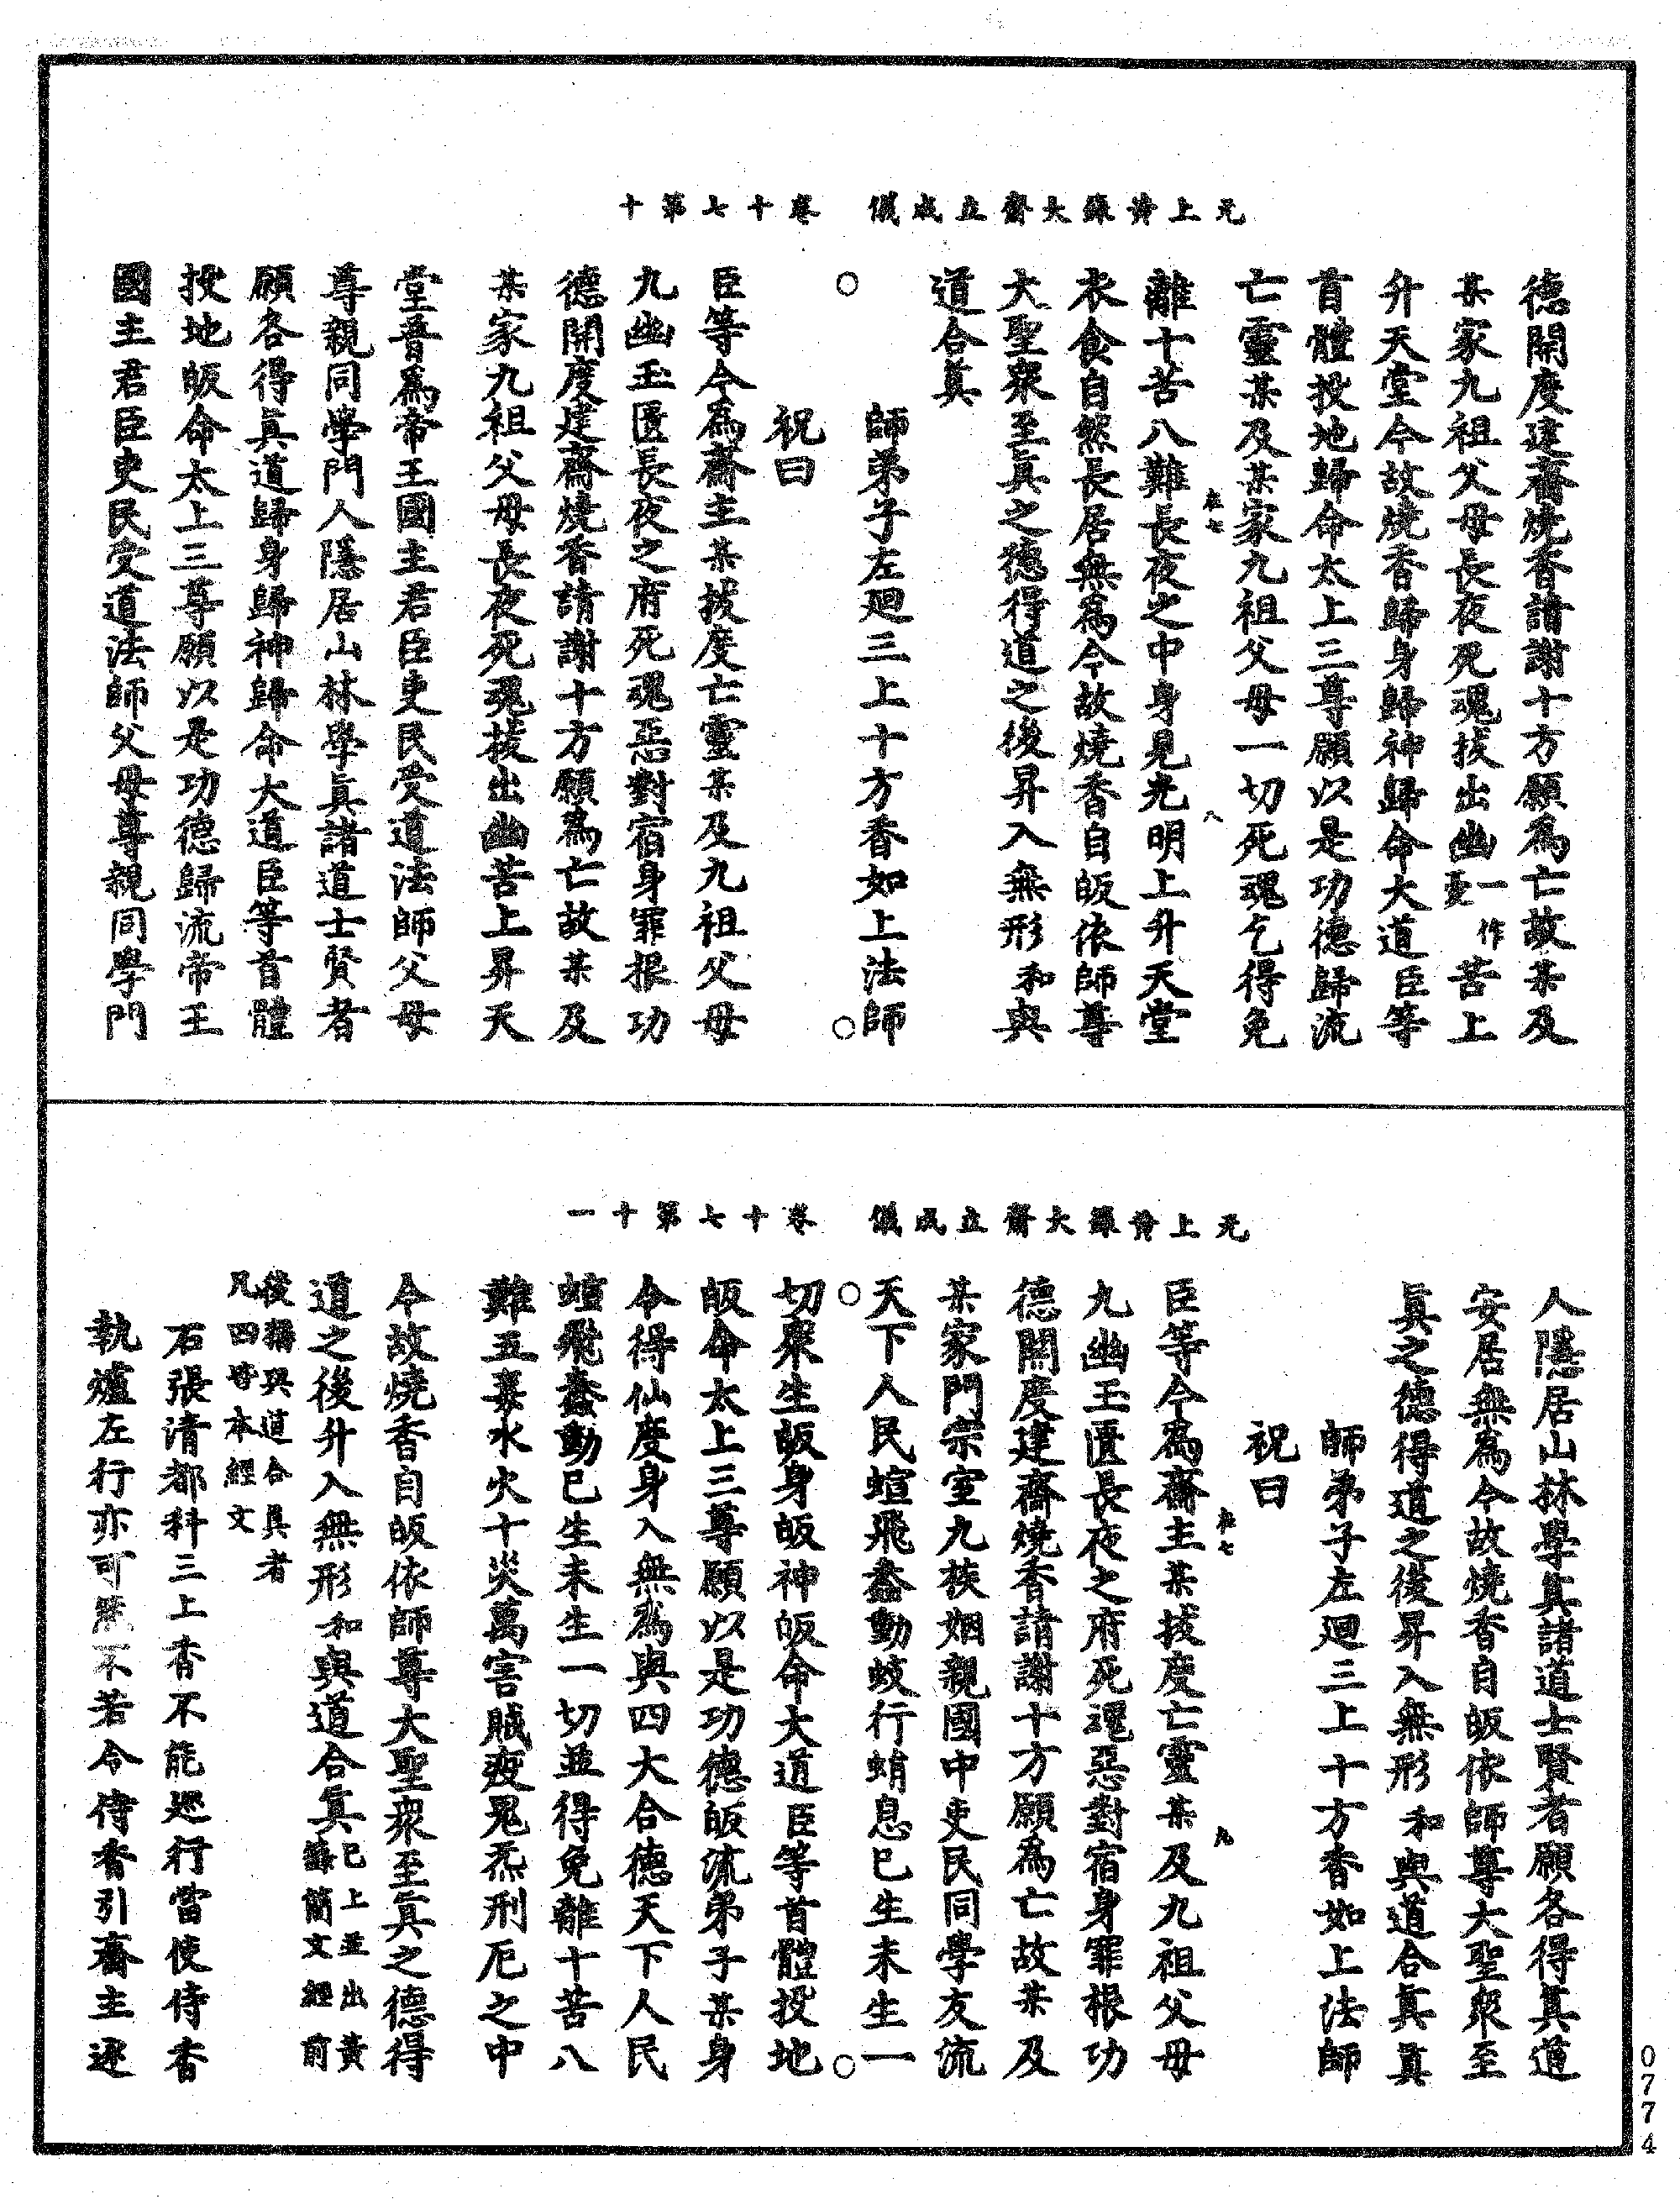 元上黃籙大齋立成儀　卷十七第十
德開度建齋燒香請謝十方願為亡故某及
某家九祖父母長夜死魂拔出幽一作憂苦上
升天堂今故燒香歸身歸神歸命大道臣等
首體投地歸命太上三尊願以是功德歸流
亡靈某及某家九祖父母一切死魂乞得免
卷七　八
離十苦八難長夜之中身見光明上升天堂
衣食自然長居無為今故燒香自皈依師尊
大聖衆至真之德得道之後昇入無形和與
道合真
師弟子左廻三上十方香如上法師
祝曰
臣等今為齋主某拔度亡靈某及九祖父母
九幽玉匱長夜之府死魂惡對宿身罪根功
德開度建齋燒香請謝十方願為亡故某及
某家九祖父母長夜死魂拔出幽苦上昇天
堂普為帝王國主君臣吏民受道法師父母
尊親同學門人隱居山林學真諸道士賢者
願各得真道歸身歸神歸命大道臣等首體
投地皈命太上三尊願以是功德歸流帝王
國主君臣吏民受道法師父母尊親同學門
元上黃籙大齋立成儀　卷十七第十一
人隱居山林學真諸道士賢者願各得真道
安居無為今故燒香自皈依師尊大聖衆至
真之德得道之後昇入無形和與道合真真
師弟子左廻三上十方香如上法師
祝曰
卷七　九
臣等今為齋主某拔度亡靈某及九祖父母
九幽玉匱長夜之府死魂惡對宿身罪根功
德開度建齋燒香請謝十方願為亡故某及
某家門宗室九族姻親國中吏民同學友流
天下人民蝖飛蠢動蚑行蜎息已生未生一
切衆生皈身皈神皈命大道臣等首體投地
皈命太上三尊願以是功德皈流弟子某身
令得仙度身入無為與四大合德天下人民
蝖飛蠢動已生未生一切並得免離十苦八
難五毒水火十災萬害賊疫鬼炁刑厄之中
今故燒香自皈依師尊大聖衆至真之德得
道之後升入無形和與道合真已上並出黃籙簡文經前
後稱與道合真者凡四皆本經文
石張清都科三上香不能廵行當使侍香
執爐左行亦可不若令侍香引齋主逐
0774